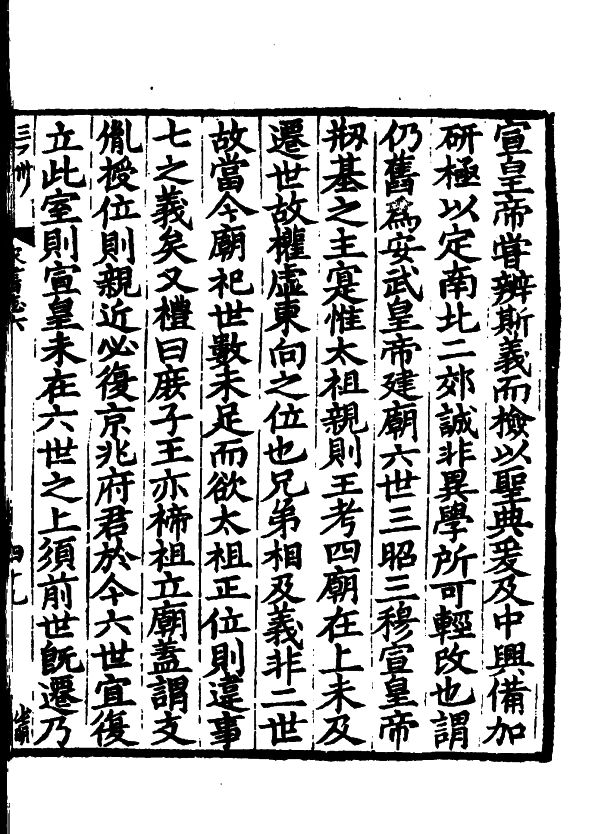 宣皇帝嘗辨斯義而檢以聖典爰及中興備加
研極以定南北二郊誠非異學所可輕改也謂
仍舊爲安武皇帝建廟六世三昭三穆宣皇帝
剏基之主寔惟太祖親則王考四廟在上未及
遷世故權虛東向之位也兄弟相及義非二世
故當今廟祀世數未足而欲太祖正位則違事
七之義矣又禮曰庶子王亦禘祖立廟蓋謂支
胤授位則親近必復京兆府君於今六世宜復
立此室則宣皇未在六世之上須前世既遷乃
宋書志六
四十九